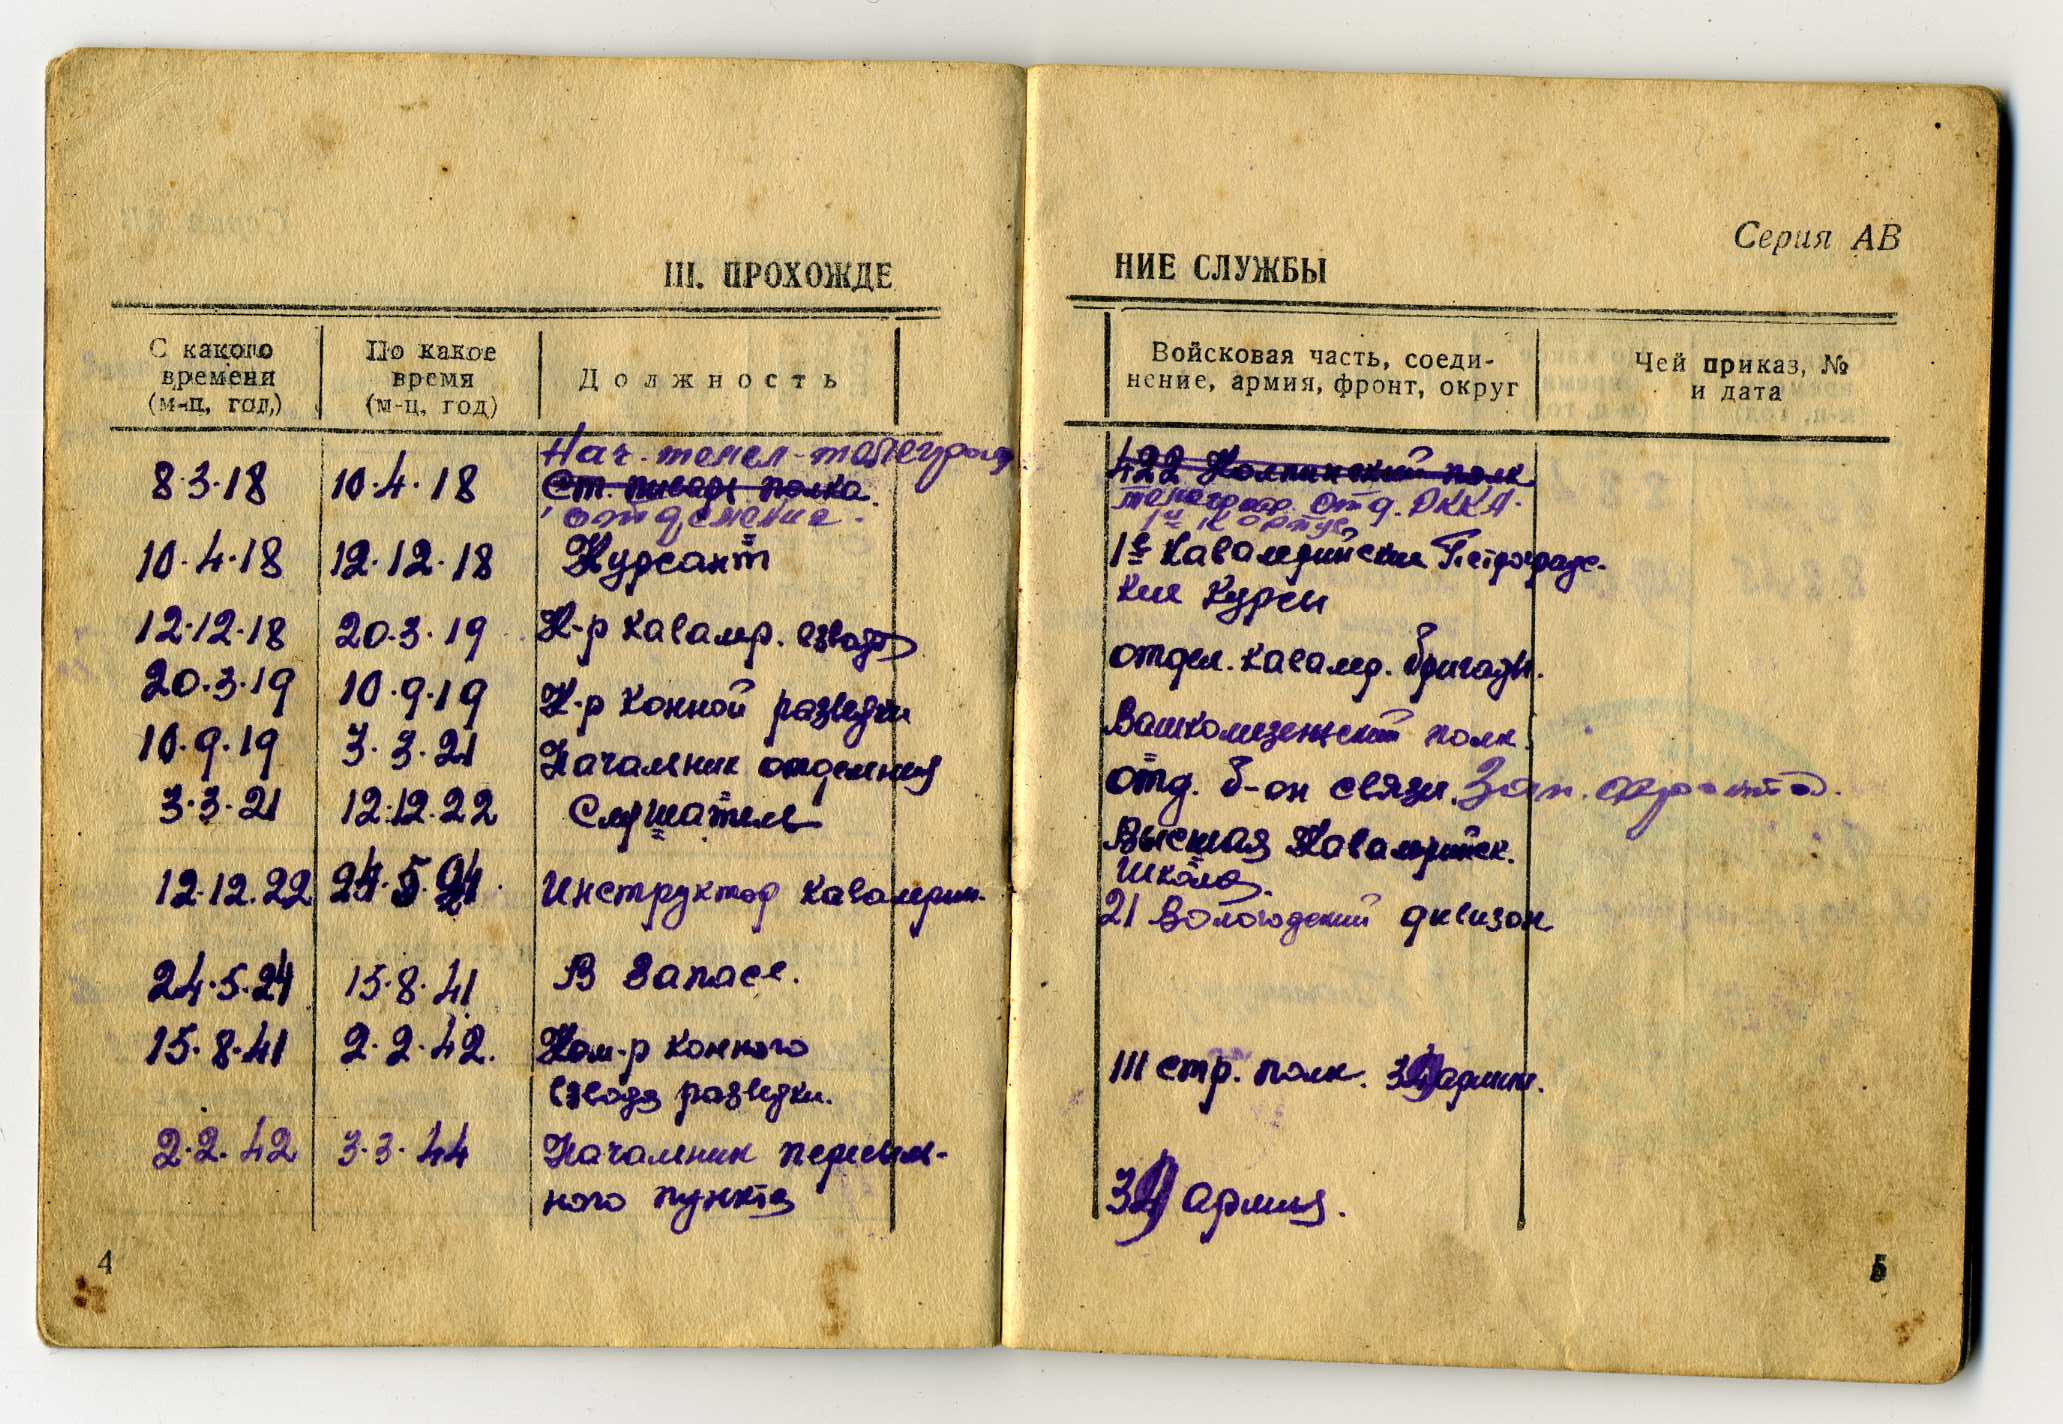 Серия АВ
III. ПРОХОЖДЕ
НИЕ СЛУЖБЫ
С какого времени (м-ц, год,)
По какое время (м-ц, год)
Должность
Войсковая часть, соеди-
нение, армия, фронт, округ
Чей приказ, №
и дата
Нач. телеф-телеграф
8.3.18 10.4.18 Ст. писарь полка. 422 Колпинский полк
отделения. телеграф. отд. РККА.
1й корпус
10.4.18 12.12.18 Курсант 1е Кавалерийские Петроградс-
кие курсы
12.12.18 20.3.19 К-р кавалер. взвода отдел. кавалер. бригады.
20.3.19 10.9.19 К-р конной разведки полк.
10.9.19 3.3.21 Начальник отделения отд. б-он связи. Зап. фронта.
3.3.21 12.12.22 Слушатель Высшая Кавалерийск.
школа.
12.12.22 24.5.24. Инструктор кавалерии. 21 Вологодский дивизон
24.5.24 15.8.41 В запасе.
15.8.41 2.2.42. Ком-р конного III стр. полк. 34 армии.
взвода разведки.
2.2.42 3.3.44 Начальник пересыль-
ного пункта 34 армия.
4
5